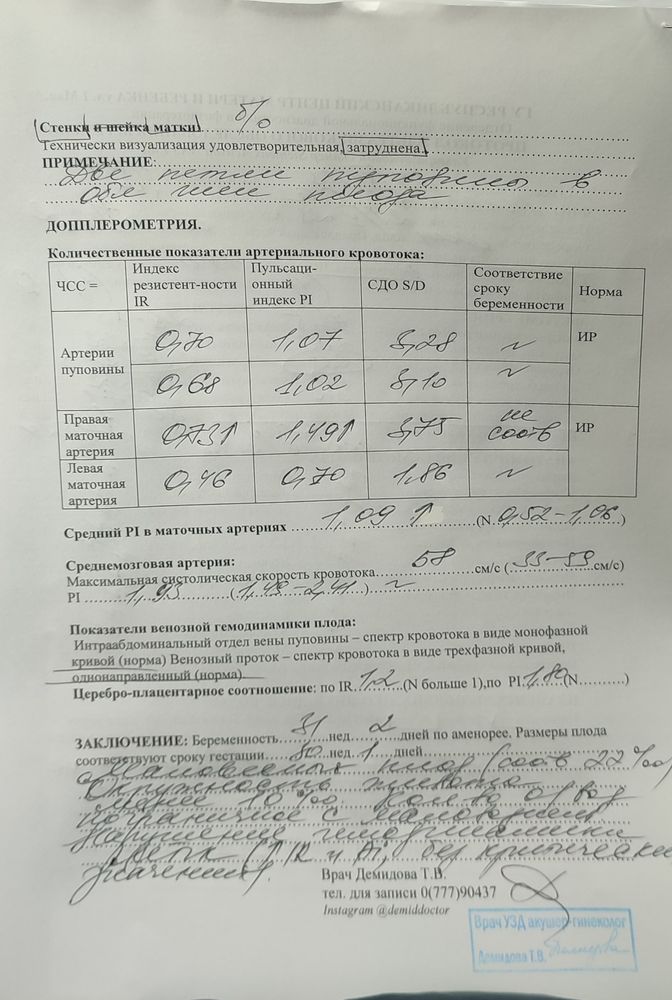 (Стенки и шейка матки) б/о
Технически визуализация удовлетворительная, затруднена.
ПРИМЕЧАНИЕ:
Две петли пуповины в
обл шеи плода
ДОППЛЕРОМЕТРИЯ.
Количественные показатели артериального кровотока:
ЧСС = Индекс резистент-ности IR Пульсаци-онный индекс PI СДО S/D Соответствие сроку беременности Норма
Артерии пуповины 0,70 1,07 3,28 ~ ИР
0,68 1,02 3,10 ~
Правая маточная артерия 0,73↑ 1,49↑ 3,75 не соотв ИР
Левая маточная артерия 0,46 0,70 1,86 ~
Средний PI в маточных артериях 1,09 ↑ (N 0,52-1,06)
Среднемозговая артерия:
Максимальная систолическая скорость кровотока 58 см/с (33-59 см/с)
PI 1,93 (1,49-2,41) ~
Показатели венозной гемодинамики плода:
Интраабдоминальный отдел вены пуповины – спектр кровотока в виде монофазной
кривой (норма) Венозный проток – спектр кровотока в виде трехфазной кривой,
однонаправленный (норма).
Церебро-плацентарное соотношение: по IR 1,2 (N больше 1), по PI 1,80 (N )
ЗАКЛЮЧЕНИЕ: Беременность 31 нед. 2 дней по аменорее. Размеры плода
соответствуют сроку гестации 30 нед. 1 дней
Маловесный плод (соотв 22%)
Окружность живота
менее 10%.
пограничное с маловодием
Нарушение гемодинамики
(↑IR и PI, без критических
значений).
Врач Демидова Т.В.
тел. для записи 0(777)90437
Instagram @demiddoctor
Врач УЗД акушер-гинеколог
Демидова Т.В.